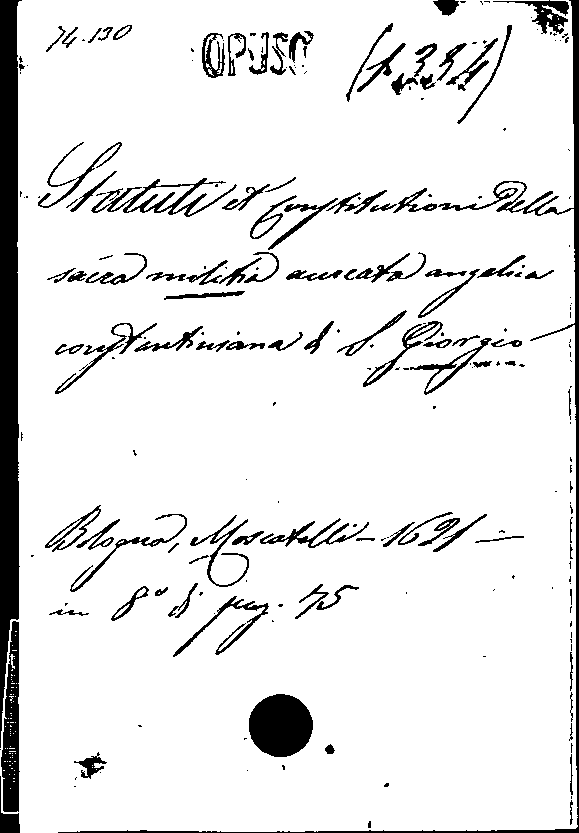 74.130
OPUSC
(p. 334)
Statuti et Constitutioni della
sacra militia aureata angelica
constantiniana di S. Giorgio
Bologna, Moscatelli - 1621 -
in 8º di pag. 75